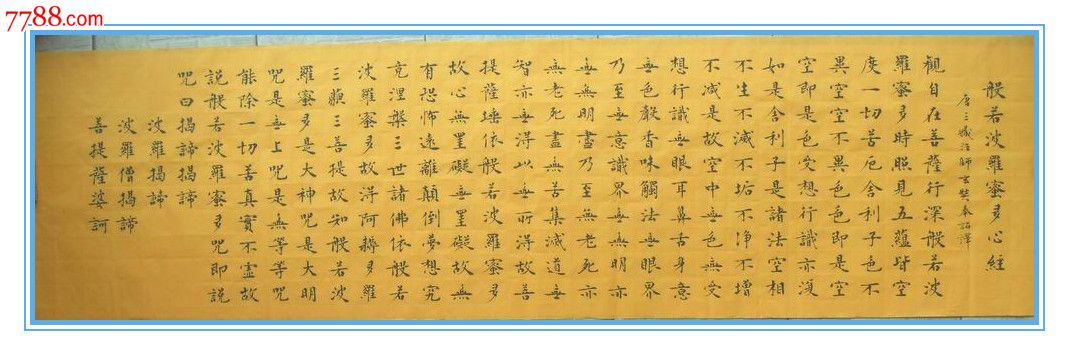 7788.com
般若波羅蜜多心經
唐三藏法師玄奘奉詔譯
觀自在菩薩行深般若波
羅蜜多時照見五蘊皆空
度一切苦厄舍利子色不
異空空不異色色即是空
空即是色受想行識亦復
如是舍利子是諸法空相
不生不滅不垢不淨不增
不減是故空中無色無受
想行識無眼耳鼻舌身意
無色聲香味觸法無眼界
乃至無意識界無無明亦
無無明盡乃至無老死亦
無老死盡無苦集滅道無
智亦無得以無所得故菩
提薩埵依般若波羅蜜多
故心無罣礙無罣礙故無
有恐怖遠離顛倒夢想究
竟涅槃三世諸佛依般若
波羅蜜多故得阿耨多羅
三藐三菩提故知般若波
羅蜜多是大神呪是大明
呪是無上呪是無等等呪
能除一切苦真實不虛故
說般若波羅蜜多呪即說
呪曰揭諦揭諦
波羅揭諦
波羅僧揭諦
菩提薩婆訶